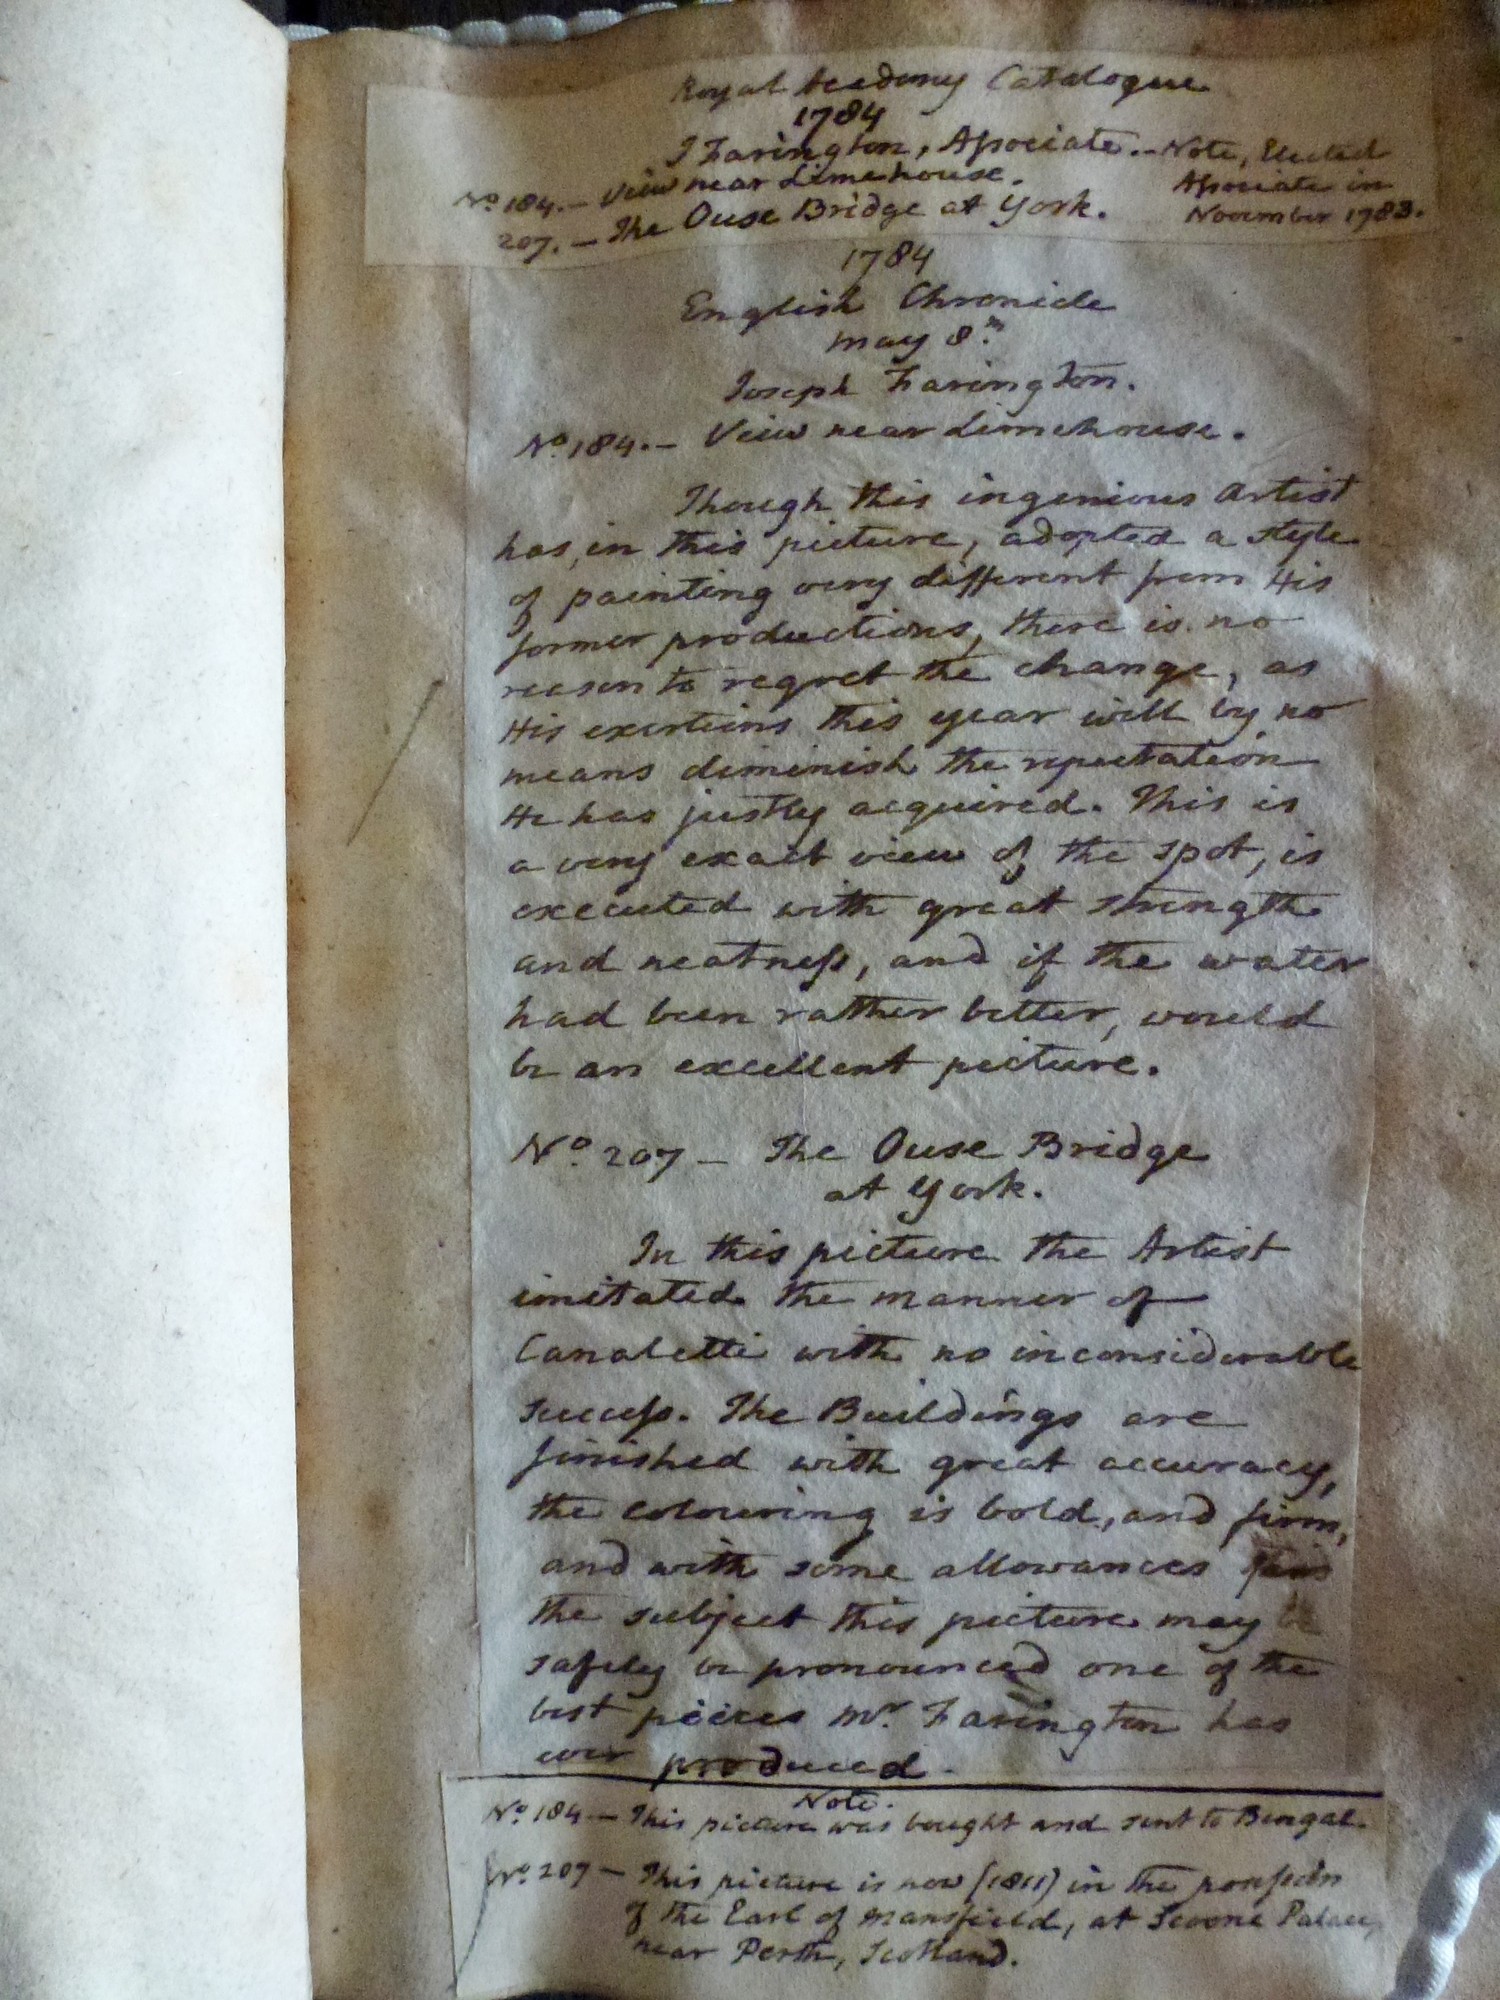 Royal Academy Catalogue
1784
J Farington, Aſsociate. - Note, Elected
Aſsociate in
November 1783.
No. 184. - View near Limehouse.
207. - The Ouse Bridge at York.
1784
English Chronicle
May 8th
Joseph Farington.
No. 184. - View near Limehouse.
Though this ingenious Artist
has, in this picture, adopted a style
of painting very different from His
former productions, there is no
reason to regret the change, as
His exertions this year will by no
means diminish the reputation
He has justly acquired. This is
a very exact view of the spot, is
executed with great strength
and neatneſs, and if the water
had been rather better, would
be an excellent picture.
No. 207 - The Ouse Bridge
at York.
In this picture the Artist
imitated the manner of
Canaletti with no inconsiderable
succeſs. The Buildings are
finished with great accuracy,
the colouring is bold, and firm,
and with some allowances
the subject this picture may be
safely be pronounced one of the
best pieices Mr. Farington has
ever produced.
Note.
No. 184 - This picture was bought and sent to Bengal.
No. 207 - This picture is now (1811) in the poſseſsion
of the Earl of Mansfield, at Scoone Palace,
near Perth, Scotland.